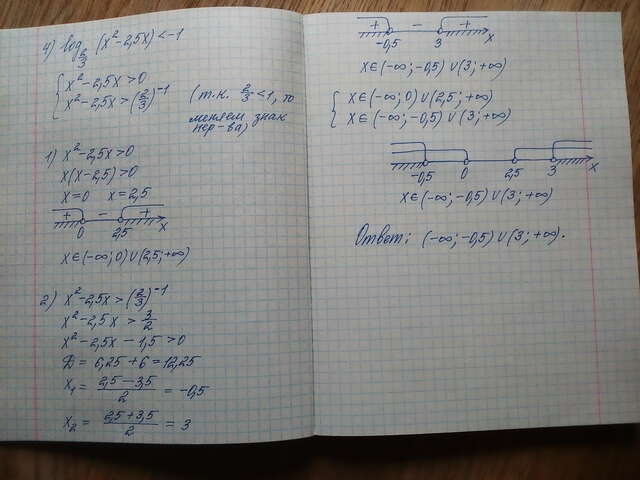 4) log_{2/3} (x² - 2,5x) < -1
{ x² - 2,5x > 0
{ x² - 2,5x > (2/3)⁻¹ (т.к. 2/3 < 1, то
меняем знак
нер-ва)
1) x² - 2,5x > 0
x(x - 2,5) > 0
x = 0 x = 2,5
+ - +
0 2,5 x
x ∈ (-∞; 0) ∪ (2,5; +∞)
2) x² - 2,5x > (2/3)⁻¹
x² - 2,5x > 3/2
x² - 2,5x - 1,5 > 0
D = 6,25 + 6 = 12,25
x₁ = (2,5 - 3,5)/2 = -0,5
x₂ = (2,5 + 3,5)/2 = 3
+ - +
-0,5 3 x
x ∈ (-∞; -0,5) ∪ (3; +∞)
{ x ∈ (-∞; 0) ∪ (2,5; +∞)
{ x ∈ (-∞; -0,5) ∪ (3; +∞)
-0,5 0 2,5 3 x
x ∈ (-∞; -0,5) ∪ (3; +∞)
Ответ: (-∞; -0,5) ∪ (3; +∞).